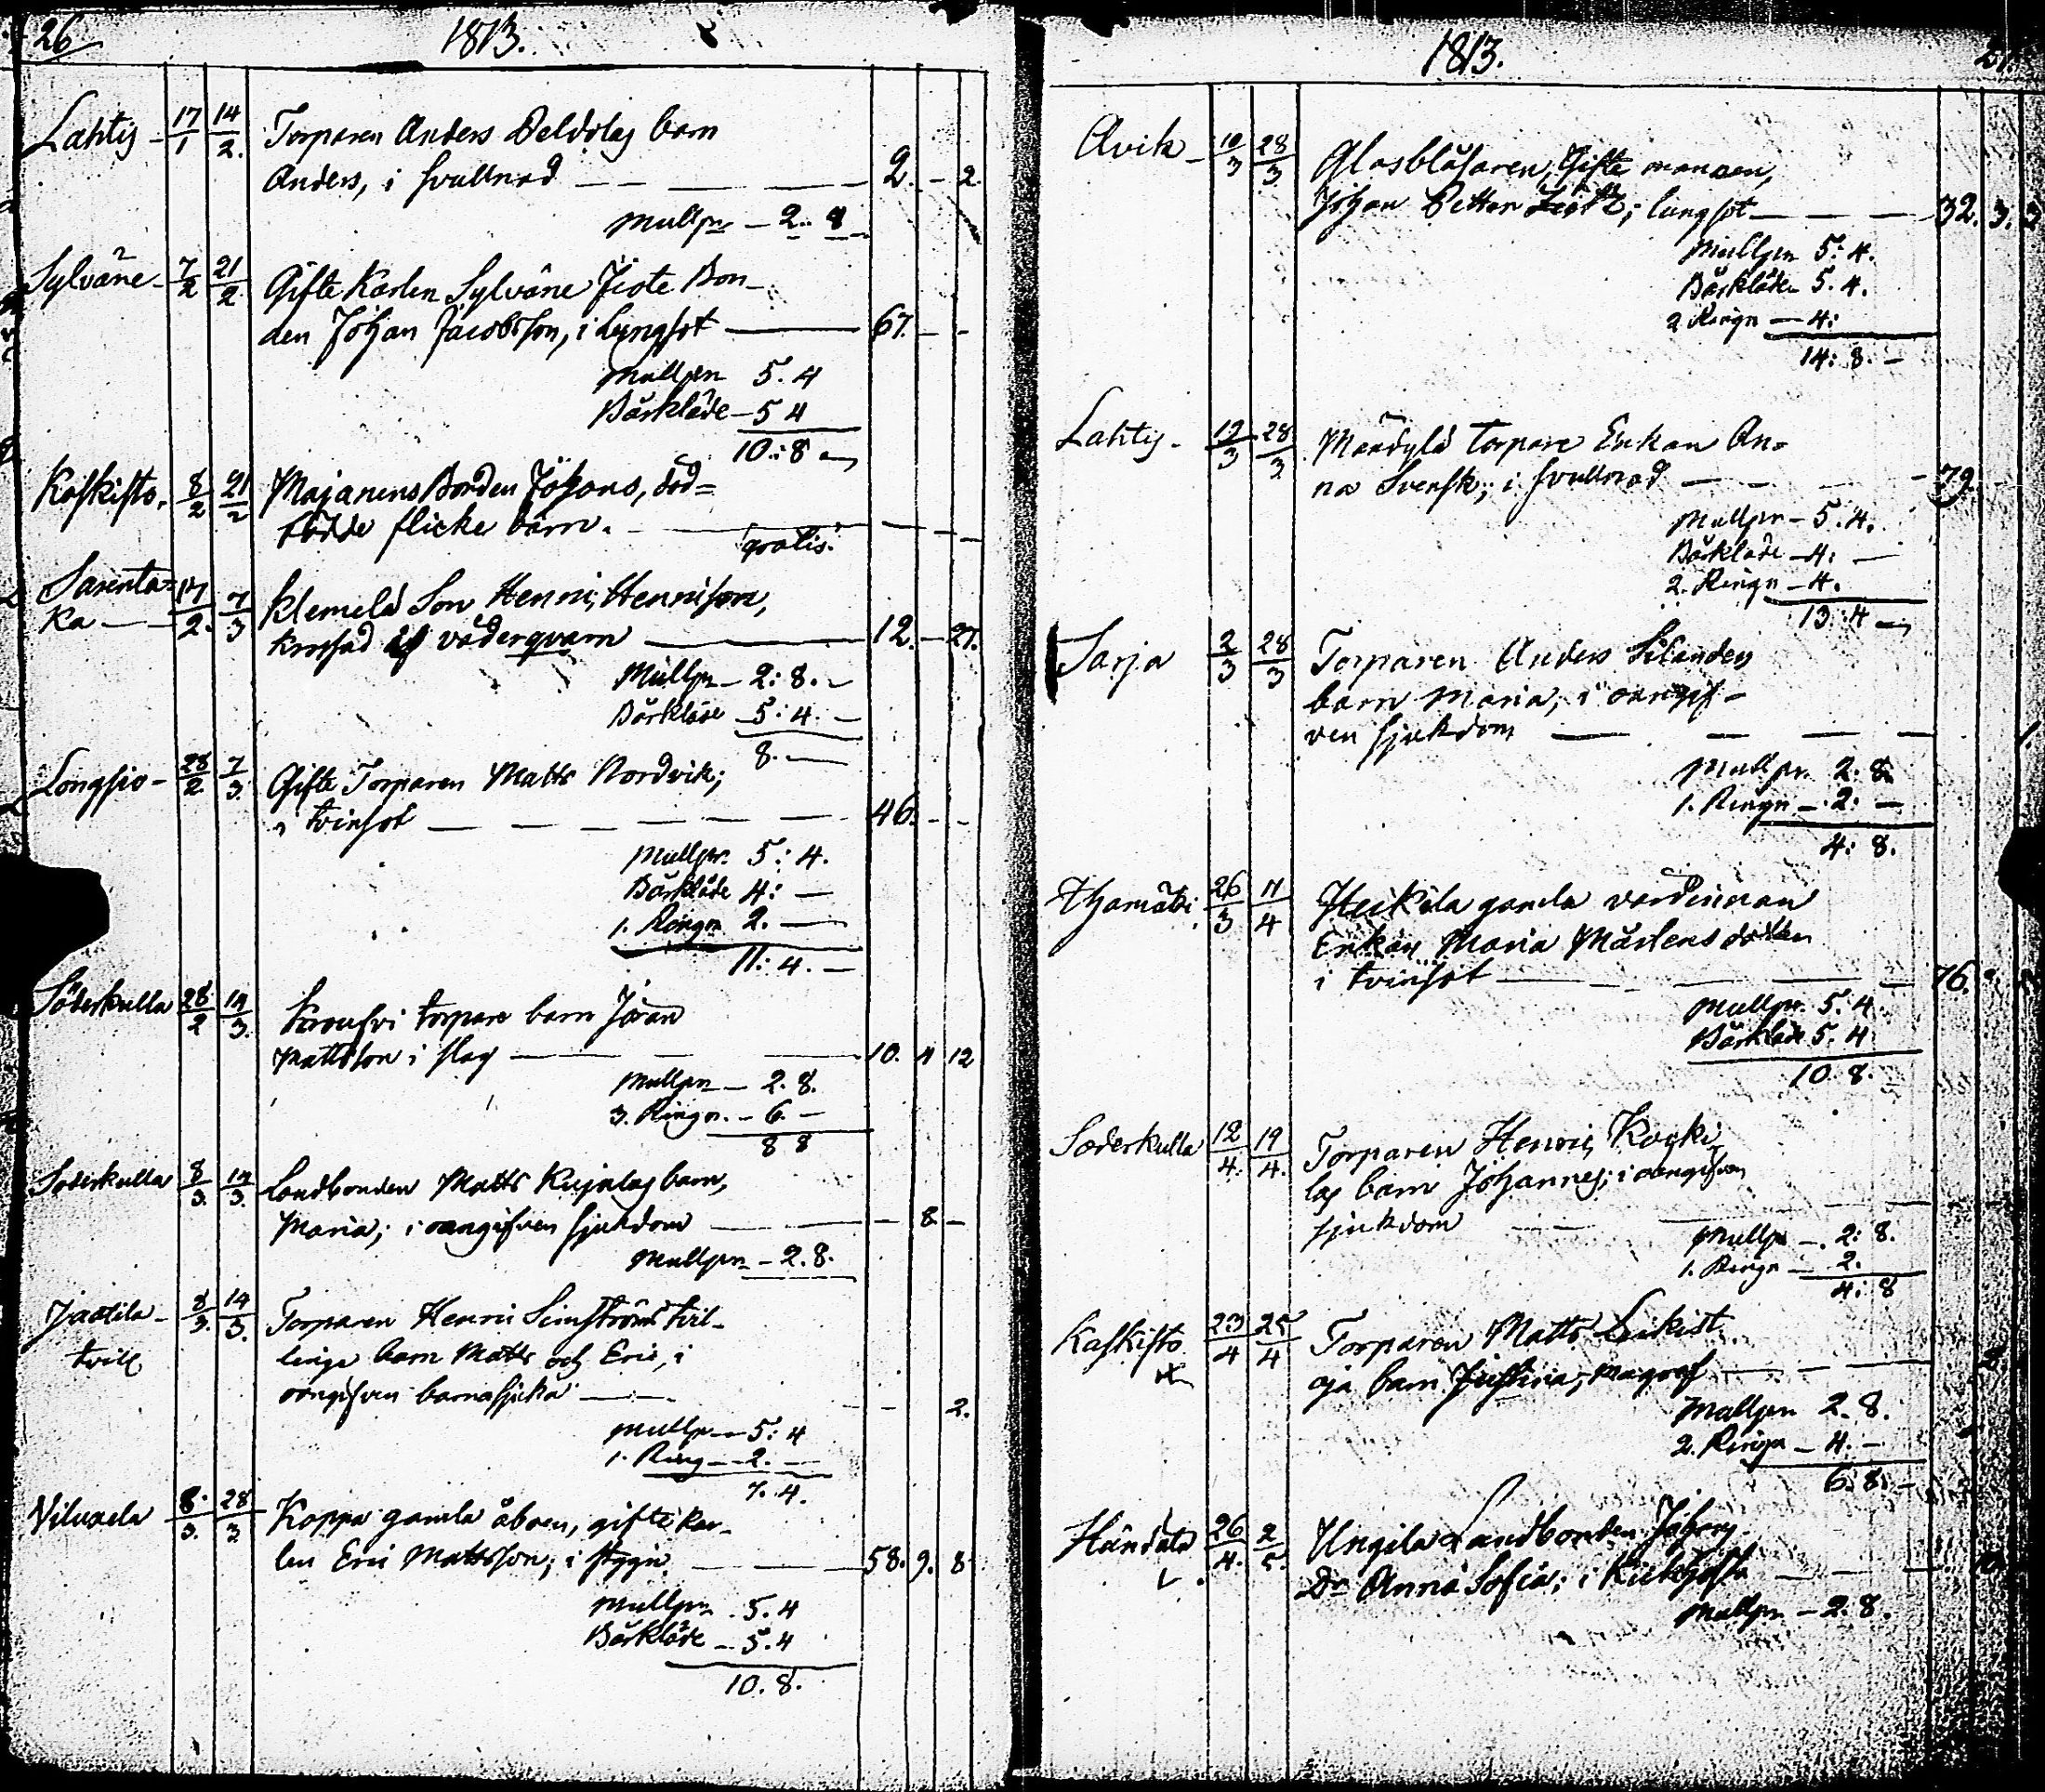 26
1813.
Lahtis - 17/1 14/2. Torparen Anders Beldolas barn
Anders, i svullnad — — — — 2. - 2.
Mullpn - 2. 8 -
Sylväne - 7/2 21/2 Gifte Karlen Sylväne Jiote Bon-
den Johan Jacobsson, i Lungsot — 67. - -
Mullpn 5. 4
Bårkläde - 5 4
10: 8 -
Koskisto. 8/2 21/2 Majanens Bonden Johans, död=
födde flicke barn. - — - -
gratis.
Sarenta= 17/2. 7/3 Klemelä Son Henric Henricson,
ka — krossad af väderqvarn — 12. - 21.
Mullpn - 2: 8. -
Bårkläde - 5: 4. -
8. -
Longsio - 28/2 7/3. Gifte Torparen Matts Nordvik;
i tvinsot — — — — — — 46. - -
Mullpn. 5: 4.
Bårkläde 4: -
1. Ringn 2. -
11: 4. -
Söderkulla 28/2 14/3. torpare barn Jöran
Mattsson i slag — — — 10. 11 12
Mullpn - 2. 8.
3. Ringn. - 6. -
8 8
Söderkulla 8/3. 14/3. Landbonden Matts Kujalas barn,
Maria; i oangifven sjukdom — — - 8. -
Mullpn - 2. 8.
Jaotila - 8/3. 14/3. Torparen Henric Limströms tvil-
tvill linge barn Matts och Eric, i
oangifven barnasjuka — — - - 2.
Mullp - 5: 4
1. Ring - 2. -
7. 4.
Viluxela 8/3. 28/3 Koppa gamla åboen, gifte kar-
len Eric Mattsson; i stygn. — — 58. 9. 8
Mullpn. 5. 4
Bårkläde - 5. 4
10. 8.
1813.
Avik - 10/3 28/3 Glasblåsaren, Gifte mannen,
Johan Petter; i lungsot — — — 32. 3. 3
Mullpn 5: 4.
Bårkläde 5. 4.
2 Ringn - 4:
14: 8. -
Lahtis - 19/3 28/3 torpare Enkan An=
na Svensk; i svullnad — — — 79.
Mullpn - 5. 4.
Bårkläde - 4: -
2. Ringn - 4.
13: 4 -
Sarja 2/3 28/3 Torparen Anders Silanders
barn Maria, i oangif-
ven sjukdom — — — — 1.
Mullpn. 2. 8.
1. Ringn - 2: -
4: 8.
26/3 11/4 Heikilä gamla värdinnan
Enkan Maria Mårtensdotter
i tvinsot — — — — 76.
Mullpn. 5. 4.
Bårkläde 5. 4
10. 8.
Söderkulla 12/4. 19/4. Torparen Henric Koski
las barn Johannes; i oangifven
sjukdom — —
Mullpn - 2: 8.
1. Ringn - 2.
4: 8
Kaskisto 23/4 25/4 Torparen Matts Leikist
oja barn Justina; magref — — —
Mullpn 2. 8.
2. Ringn - 4. -
6. 8. -
Händälä 26/4. 2/5. Ungila Landbonden Johans
Dr Anna Sofia; i Kikhosta — —
Mullpn - 2. 8.